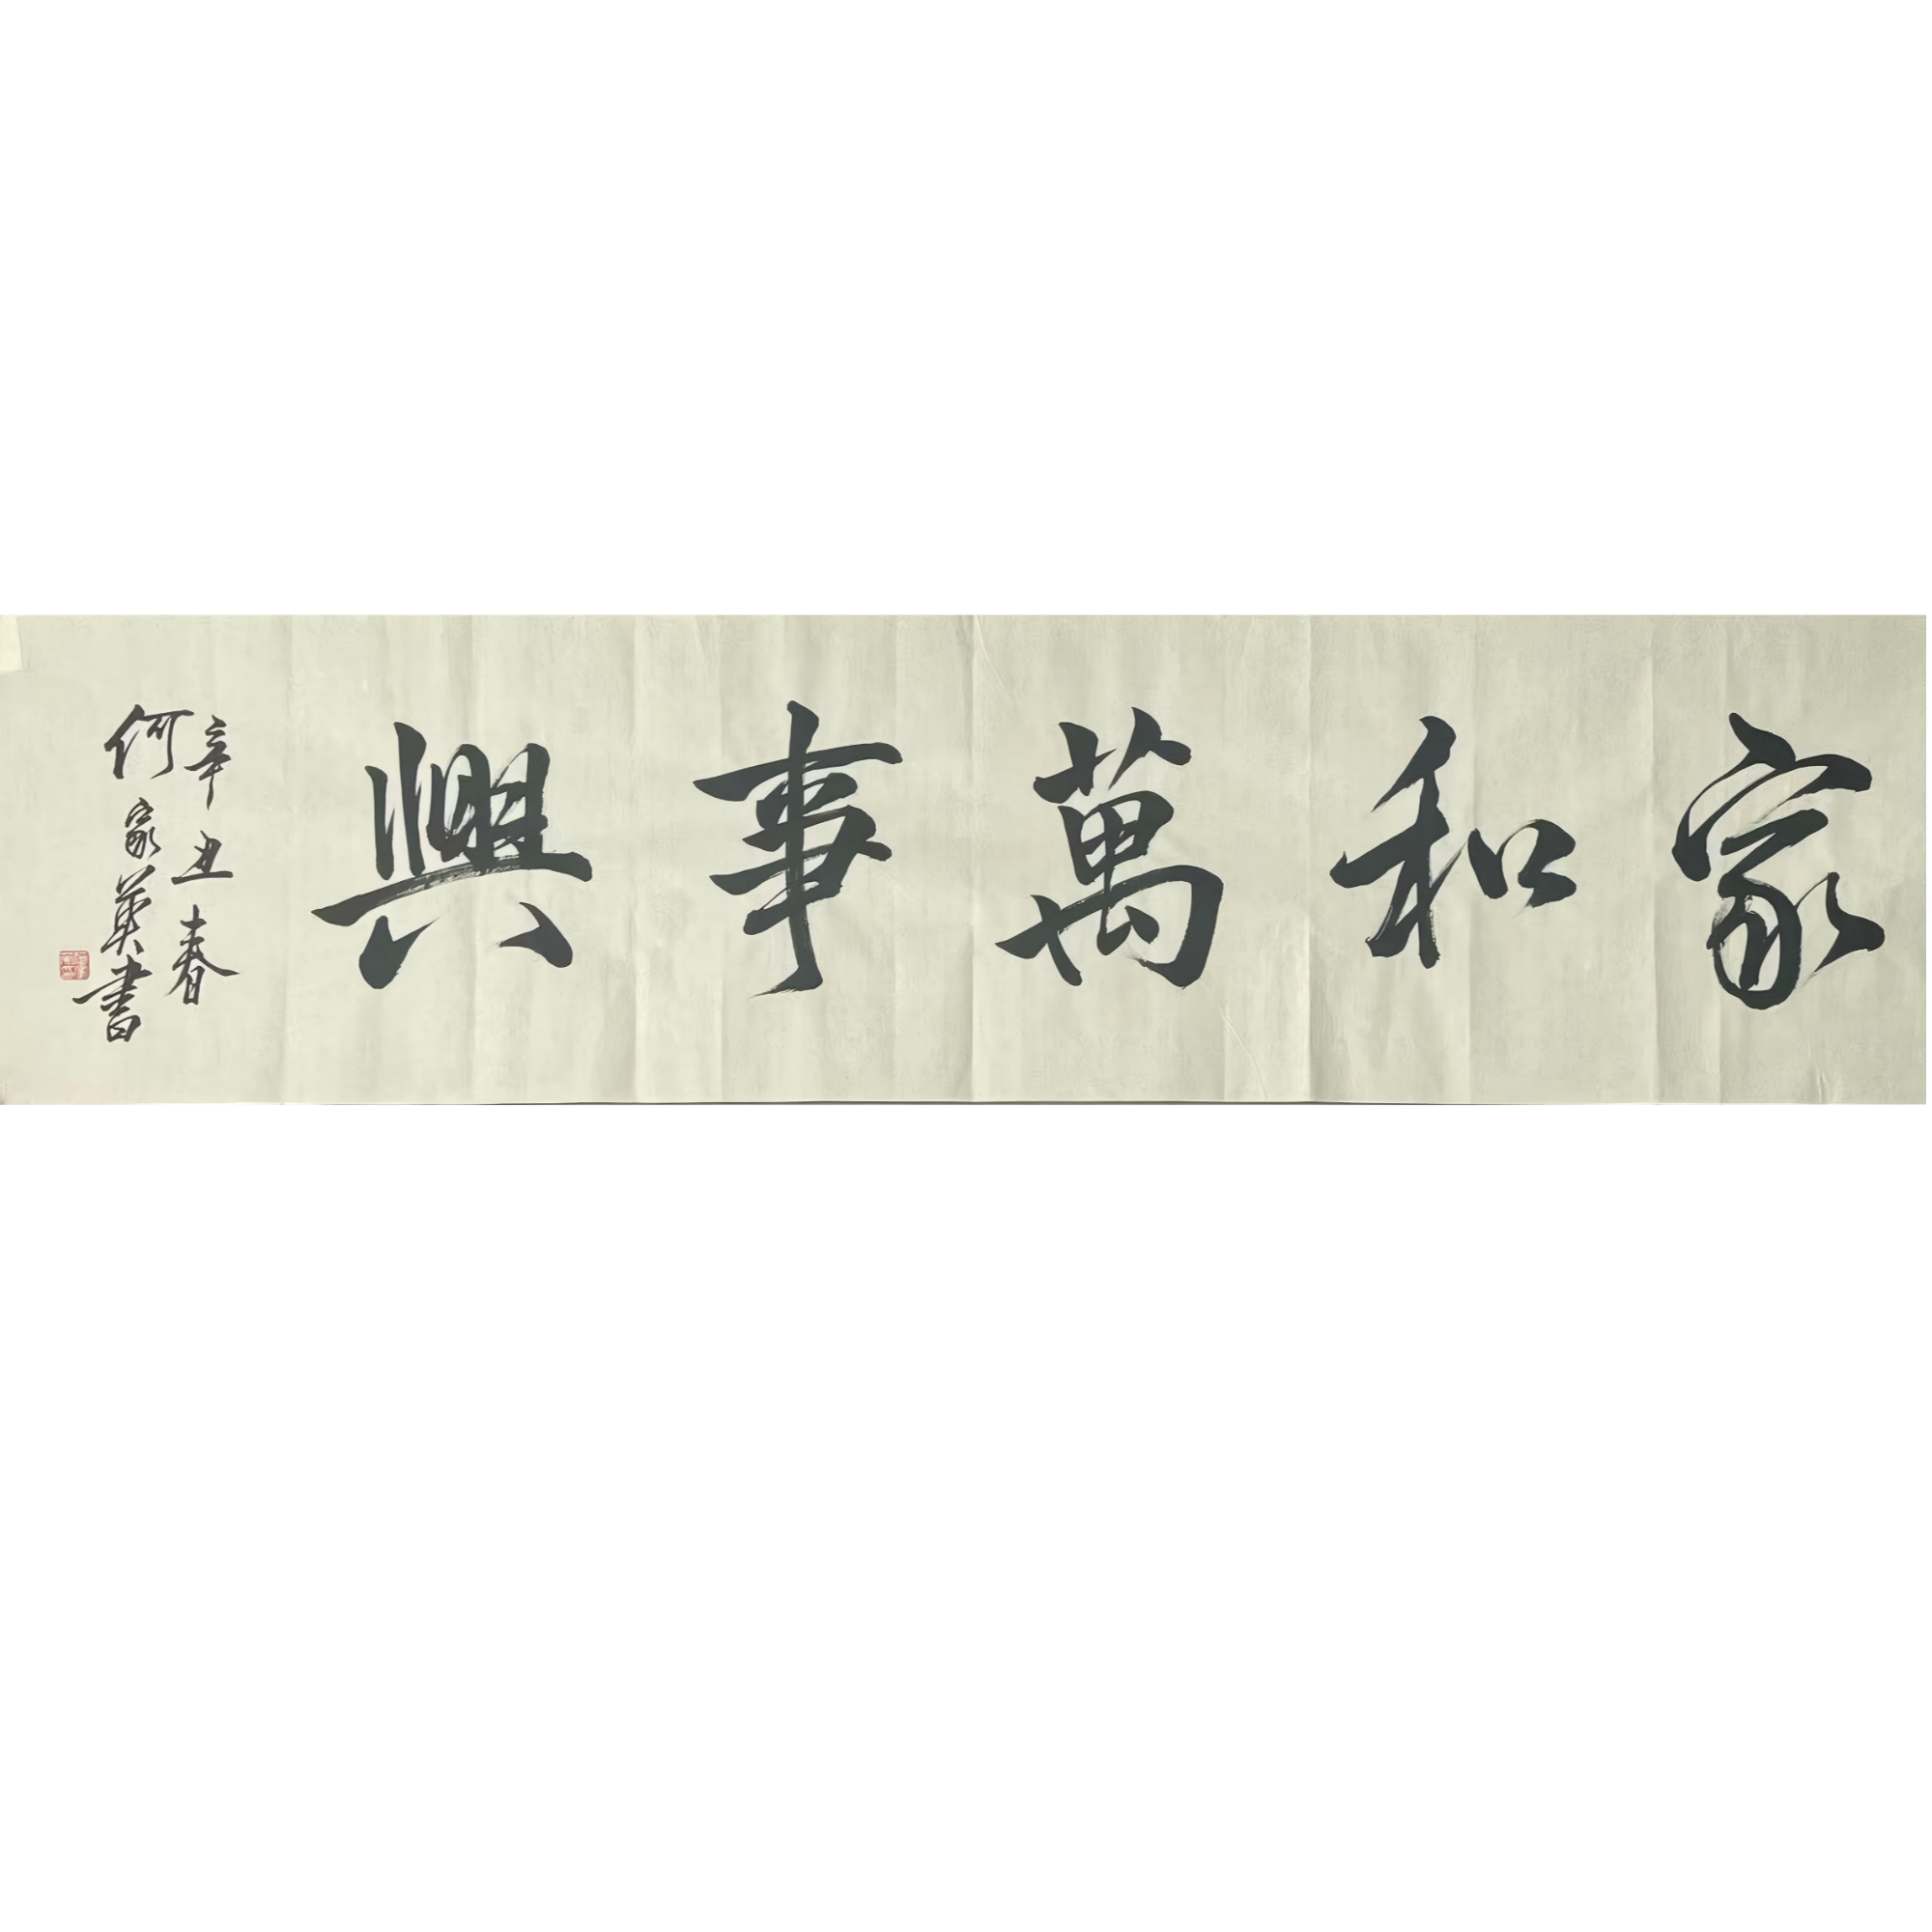 家和萬事興
辛丑春
何家英書